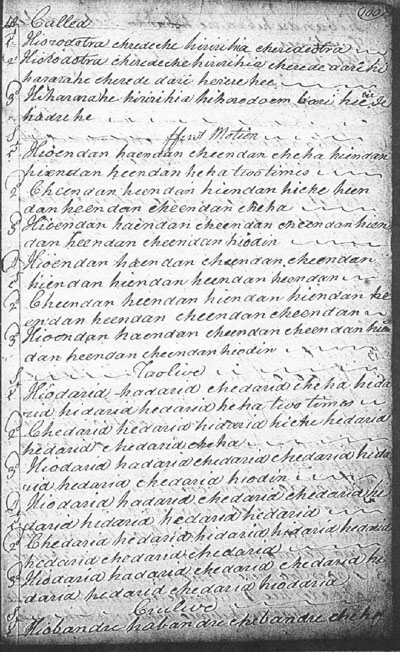 Called
Hiorodotra cheredeche hiririhia cheredeotra
Hiorodotra cheredeche hiririhia cherede darihe
hararahe cherede dari herere hee
Hihararahe hiririhia hihorodo em bari
hadre he
ffirst Motion
Hioendan haendan cheendan cheha heendan
hiendan heendan heha two times
Cheendan heendan hiendan hiche heen
dan heendan cheendan cheha
Hioendan haendan cheendan cheendan hien
dan heendan cheendan hiodin
Hioendan haendan cheendan cheendan
hiendan hiendan heendan heendan
Cheendan heendan hiendan hiendan he
endan heendan cheendan cheendan
Hioendan haendan cheendan cheendan hien
dan heendan cheendan hiodin
Taolive
Hiodarid hadarid chedarid cheha heda
rid hidarid hedarid heha two times
Chedarid hedarid hidarid hiche hedarid
hedarid chedarid cheha
Hiodarid hadarid chedarid chedarid heda
rid hedarid chedarid hiodin
Hiodarid hadarid chedarid chedarid he
darid hedarid hedarid hedarid
Chedarid hedarid hidarid hidarid hedarid
hedarid chedarid chedarid
Hiodarid hadarid chedarid chedarid he
darid hedarid chedarid hiodarid
Crulive
Hiobandre habandre chebandre cheha